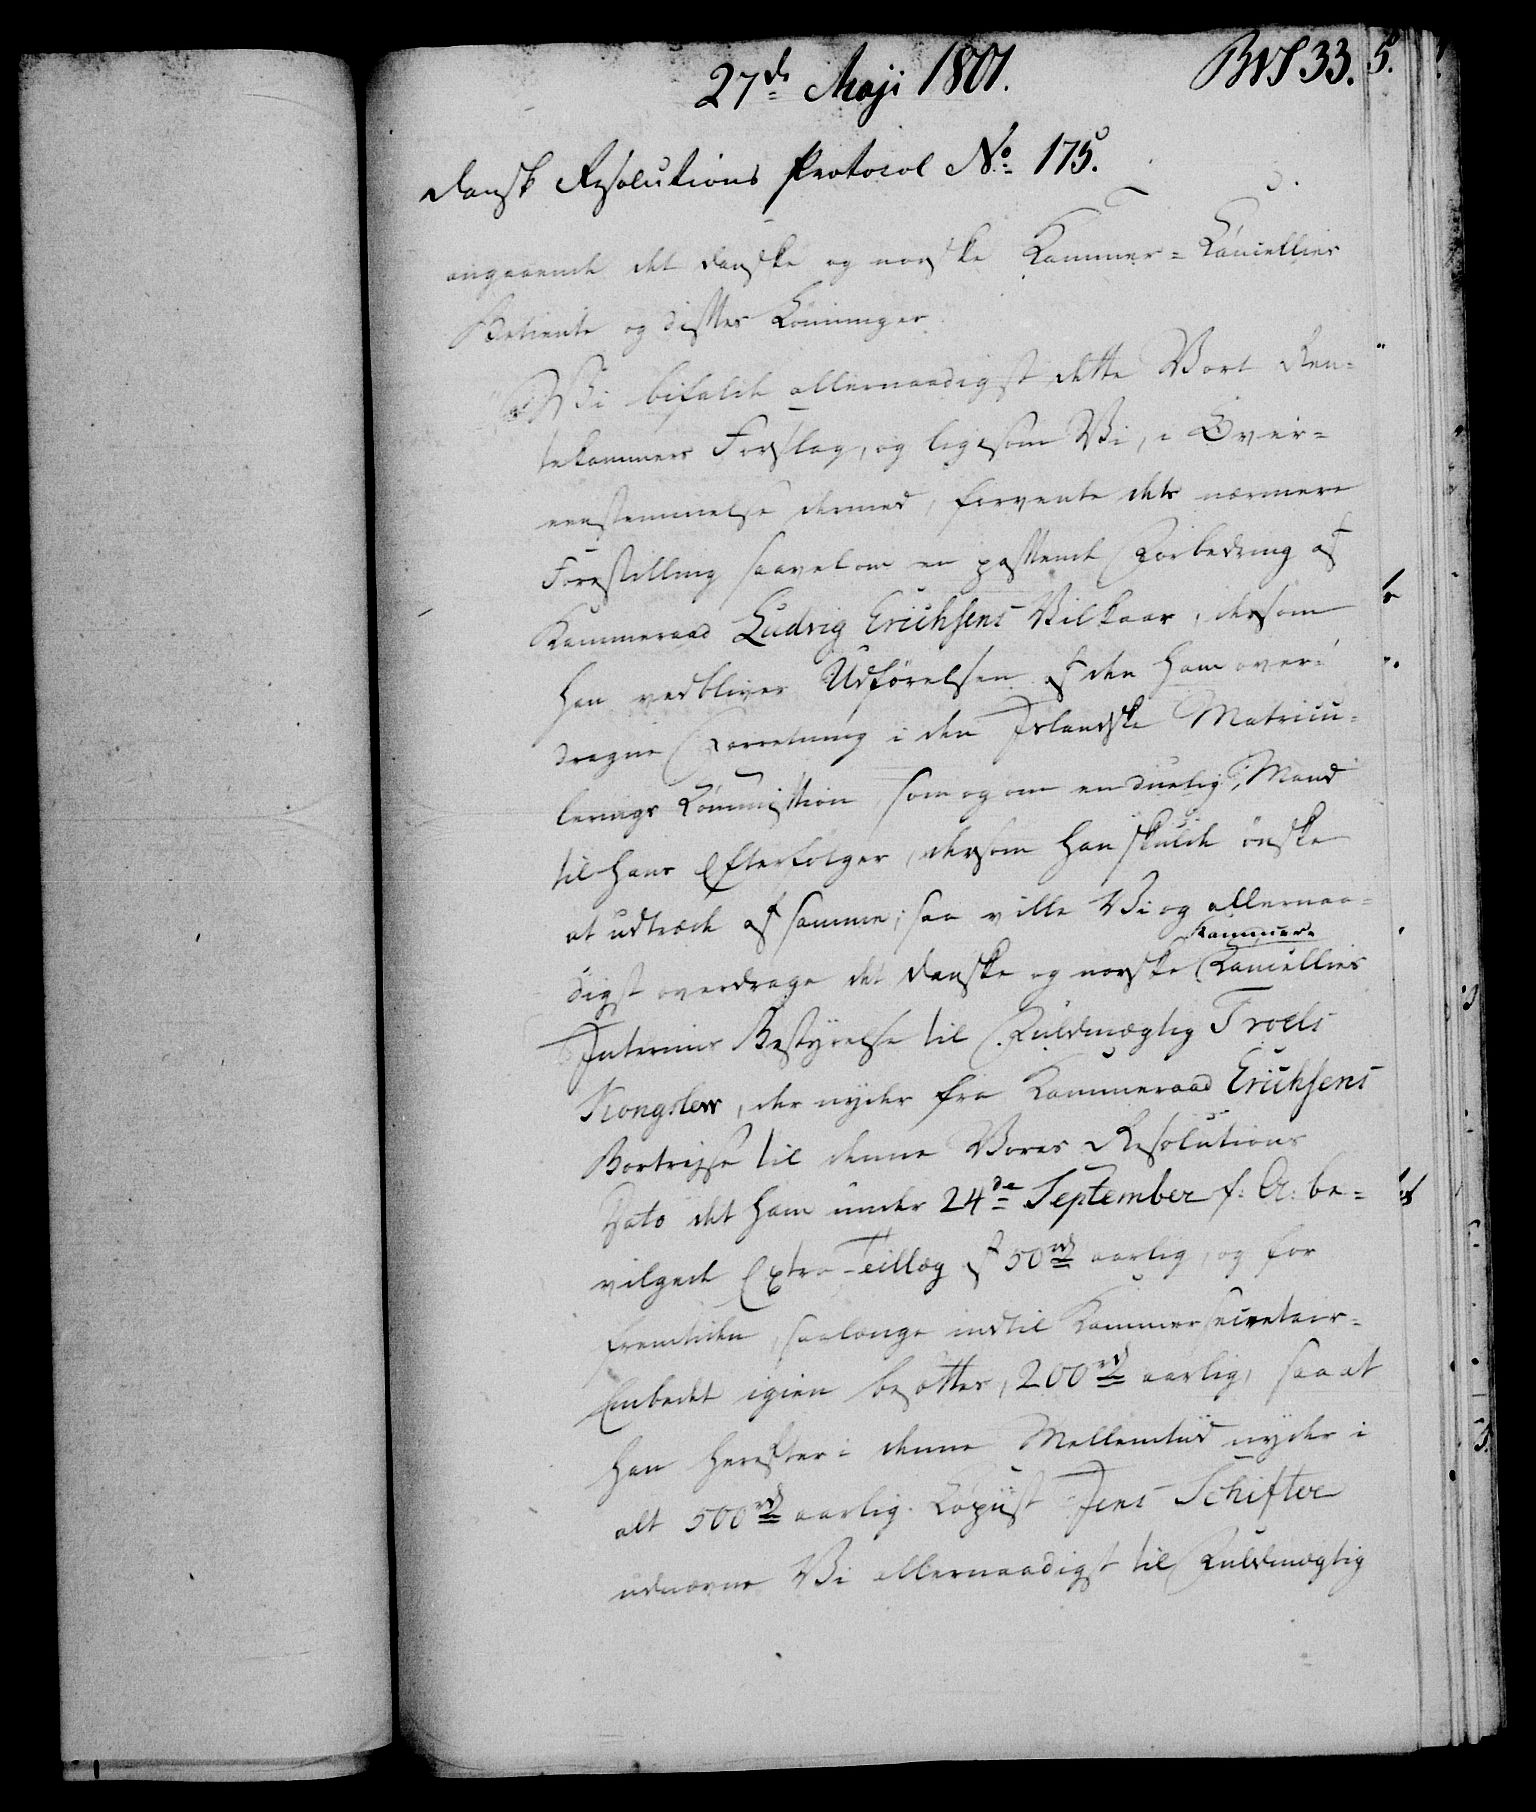 27de Maji 1801. BNS 33. 5.
Dansk Resolutions Protocol No. 175.
angaaende det danske og norske Kammer-Cancellies
Betiente og disses Lønninger
"Vi bifalde allernaadigst dette Vort Ren-"
tekammers Forslag, og ligesom Vi, i Over-
eenstemmelse dermed, forvente dets nærmere
Forestilling saavel om en passende Forbedring af
Kammeraad Ludvig Erichsens Vilkaar, dersom
han vedbliver Udførelsen af den ham over-
dragne Forretning i den Islandske Matricu-
lerings Commission, som og om en duelig Mand
til hans Efterfølger, dersom han skulde ønske
at udtræde af samme; saa ville Vi og allernaa-
Kammer-
digst overdrage det danske og norske Cancellies
Interims Bestyrelse til Fuldmægtig Troels
Kongslew, der nyder fra Kammeraad Erichsens
Bortrejse til denne Vores Resolutions
Dato det ham under 24de September f: A: be-
vilgede Extra-Tillæg af 50 rd aarlig, og for
Fremtiden, saalænge indtil Kammersecretair-
Embedet igien besættes, 200 rd aarlig, saa at
han herefter i denne Mellemtiid nyder i
alt 500 rd aarlig. Copiist Jens Schifter
udnævne Vi allernaadigst til Fuldmægtig